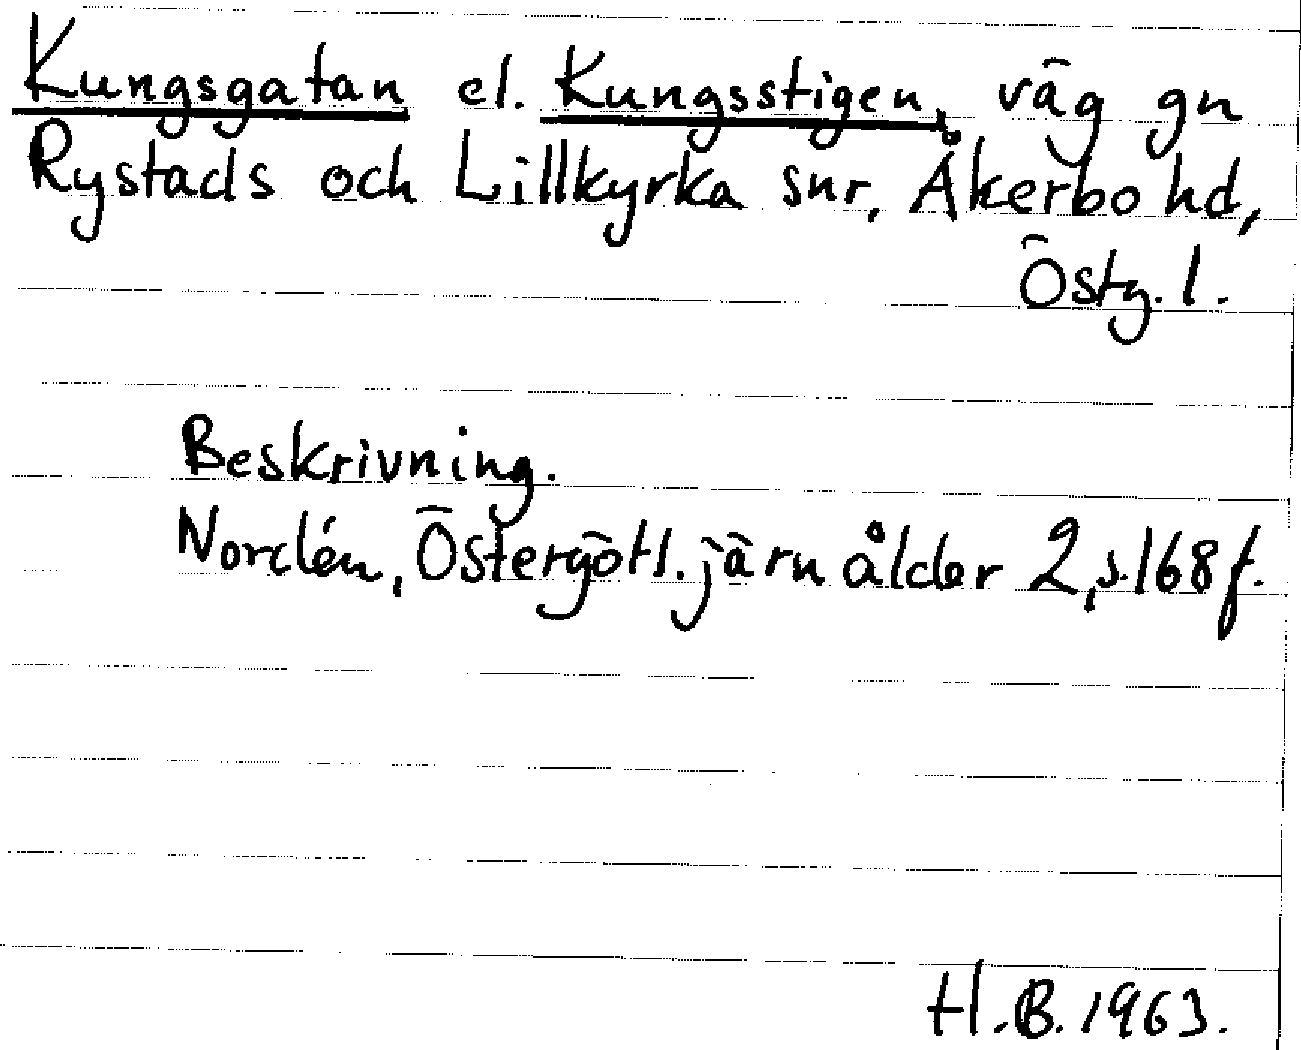 Kungsgatan el. Kungsstigen, väg gn
Rystads och Lillkyrka snr, Åkerbo hd,
Östg. l.
Beskrivning.
Nordén, Östergötl. järnålder 2, s. 168 f.
H.B. 1963.